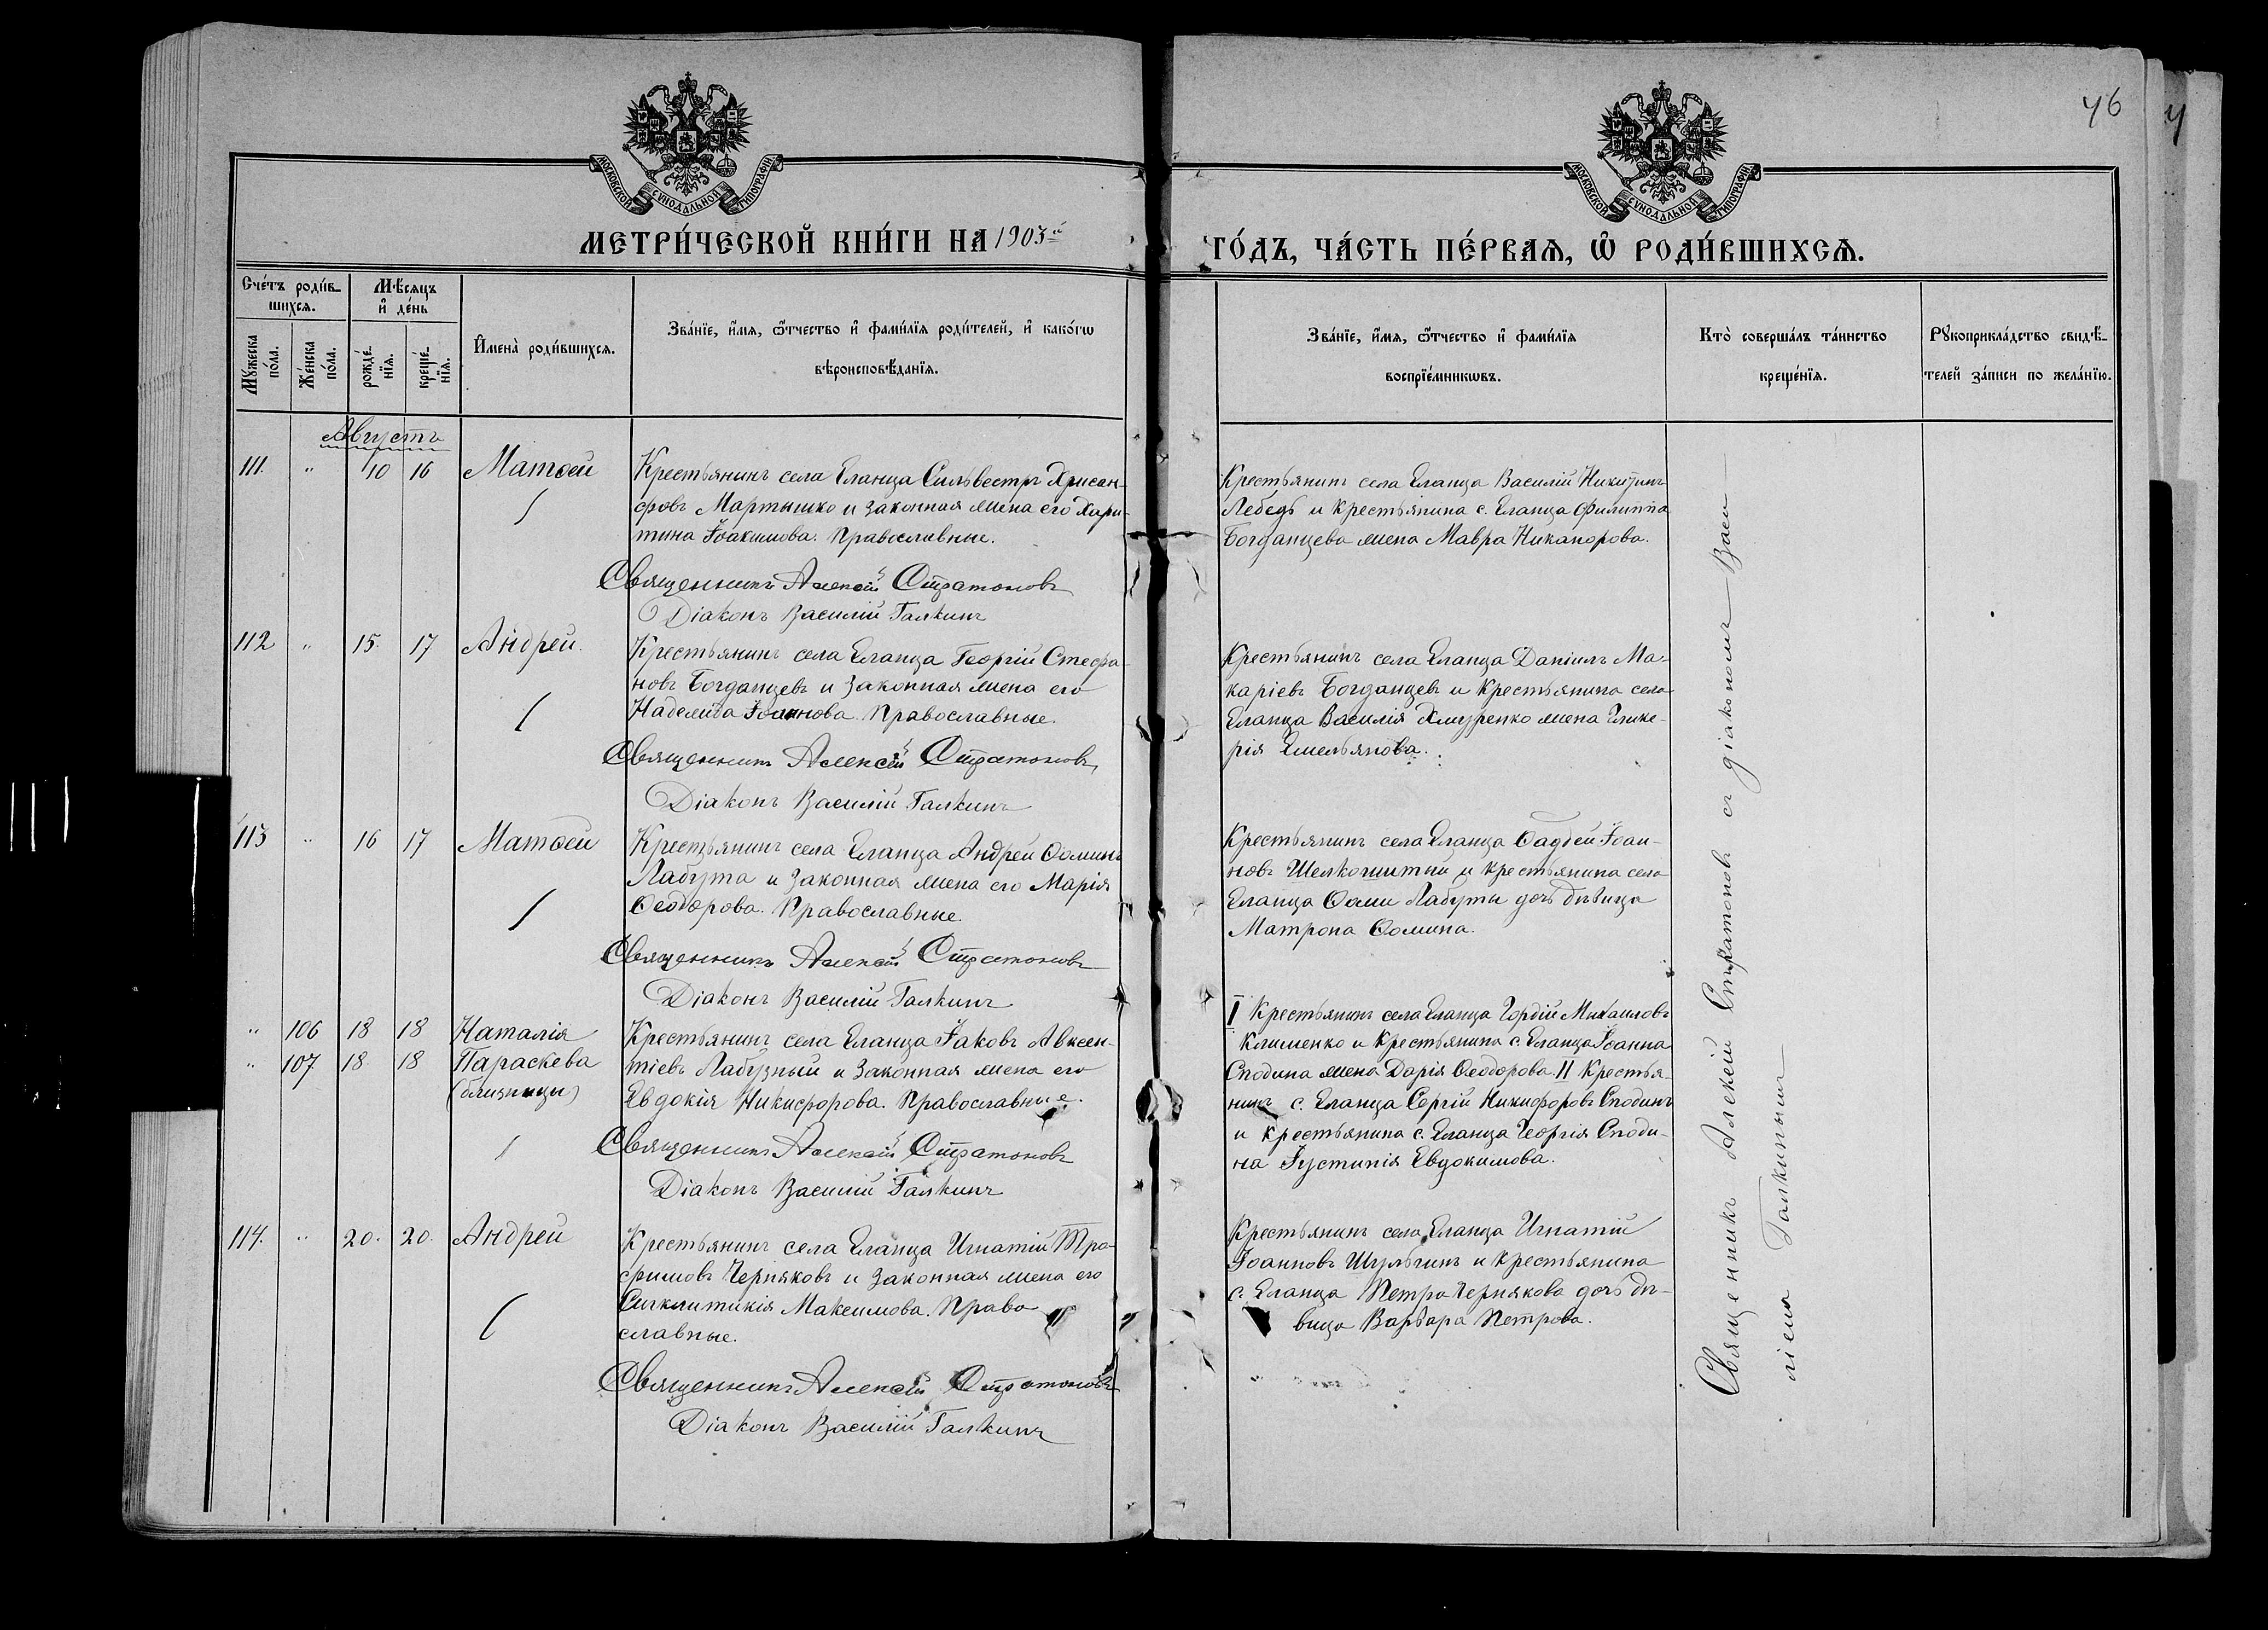 46
МОСКОВСКОЙ СѴНОДАЛЬНОЙ ТИПОГРАФІИ
МОСКОВСКОЙ СѴНОДАЛЬНОЙ ТИПОГРАФІИ
МЕТРИ́ЧЕСКОЙ КНИ́ГИ НА 1903й
ГО́ДЪ, ЧА́СТЬ ПЕ́РВАЯ, Ѡ РОДИ́ВШИХСЯ.
Сче́тъ роди́в-
шихся.
Мѣ́сяцъ
и҆ де́нь
Мꙋ́жеска
по́ла.
Же́нска
по́ла.
рожде́-
нїя.
креще́-
нїя.
И҆мена̀ роди́вшихся.
Зва́нїе, и҆́мя, ѻ҆́тчество и҆ фами́лїя роди́телей, и҆ како́гѡ
вѣроисповѣ́данїя.
Зва́нїе, и҆́мя, ѻ҆́тчество и҆ фами́лїя
воспрїе́мникѡвъ.
Кто̀ соверша́лъ та́инство
креще́нїя.
Рꙋкоприкла́дство свидѣ́-
телей за́писи по жела́нїю.
Августъ
111. " 10 16 Матѳей
Крестьянинъ села Еланца Сильвестръ Хрисан-
фовъ Мартышко и законная жена его Хари-
тина Іоакимова. Православные.
Священникъ Алексій Стратоновъ
Діаконъ Василій Галкинъ
Крестьянинъ села Еланца Василій Никитинъ
Лебедь и крестьянина с. Еланца Филиппа
Богданцева жена Мавра Никанорова.
112 " 15. 17 Андрей.
Крестьянинъ села Еланца Георгій Стефа-
новъ Богданцевъ и законная жена его
Надежда Іоаннова. Православные.
Священникъ Алексій Стратоновъ
Діаконъ Василій Галкинъ
Крестьянинъ села Еланца Даніилъ Ма-
каріевъ Богданцевъ и крестьянина села
Еланца Василія Хмуренко жена Глике-
рія Емельянова.
113 " 16 17 Матѳей
Крестьянинъ села Еланца Андрей Ѳоминъ
Лабута и законная жена его Марія
Ѳеодорова. Православные.
Священникъ Алексій Стратоновъ
Діаконъ Василій Галкинъ
Крестьянинъ села Еланца Ѳаддей Іоан-
новъ Шелкошитный и крестьянина села
Еланца Ѳомы Лабуты дочь дѣвица
Матрона Ѳомина.
" 106 18 18 Наталія
" 107. 18. 18 Параскева
(близнецы)
Крестьянинъ села Еланца Іаковъ Авксен-
тіевъ Лабузный и законная жена его
Евдокія Никифорова. Православные.
Священникъ Алексій Стратоновъ
Діаконъ Василій Галкинъ
I Крестьянинъ села Еланца Гордій Михаиловъ
Клименко и крестьянина с. Еланца Іоанна
Сподина жена Дарія Ѳеодорова. II Крестья-
нинъ с. Еланца Сергій Никифоровъ Сподинъ
и крестьянина с. Еланца Георгія Споди-
на Іустинія Евдокимова.
114. " 20. 20. Андрей
Крестьянинъ села Еланца Игнатій Тро-
фимовъ Черняковъ и законная жена его
Синклитикія Максимова. Право
славные.
Священникъ Алексій Стратоновъ
Діаконъ Василій Галкинъ
Крестьянинъ села Еланца Игнатій
Іоанновъ Шульгинъ и крестьянина
с. Еланца Петра Чернякова дочь дѣ-
вица Варвара Петрова.
Священникъ Алексій Стратоновъ съ діакономъ Васи-
ліемъ Галкинымъ